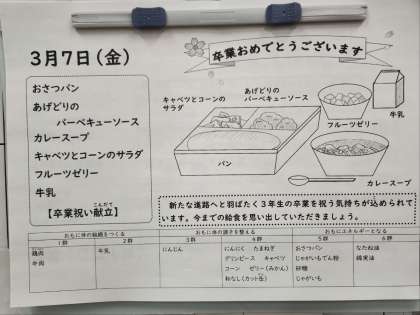 3月7日(金)
卒業おめでとうございます
おさつパン
あげどりの
バーベキューソース
カレースープ
キャベツとコーンのサラダ
フルーツゼリー
牛乳
【卒業祝い献立】
こんだて
キャベツとコーンの
サラダ
あげどりの
バーベキューソース
パン
フルーツゼリー
牛乳
カレースープ
新たな進路へと羽ばたく3年生の卒業を祝う気持ちが込められて
います。今までの給食を思い出していただきましょう。
おもに体の組織をつくる
おもに体の調子を整える
おもにエネルギーとなる
1群 2群 3群 4群 5群 6群
鶏肉 牛乳 にんじん にんにく たまねぎ おさつパン なたね油
牛肉 グリンピース キャベツ じゃがいもでん粉 綿実油
コーン ゼリー(みかん) 砂糖
和なし(カット缶) じゃがいも